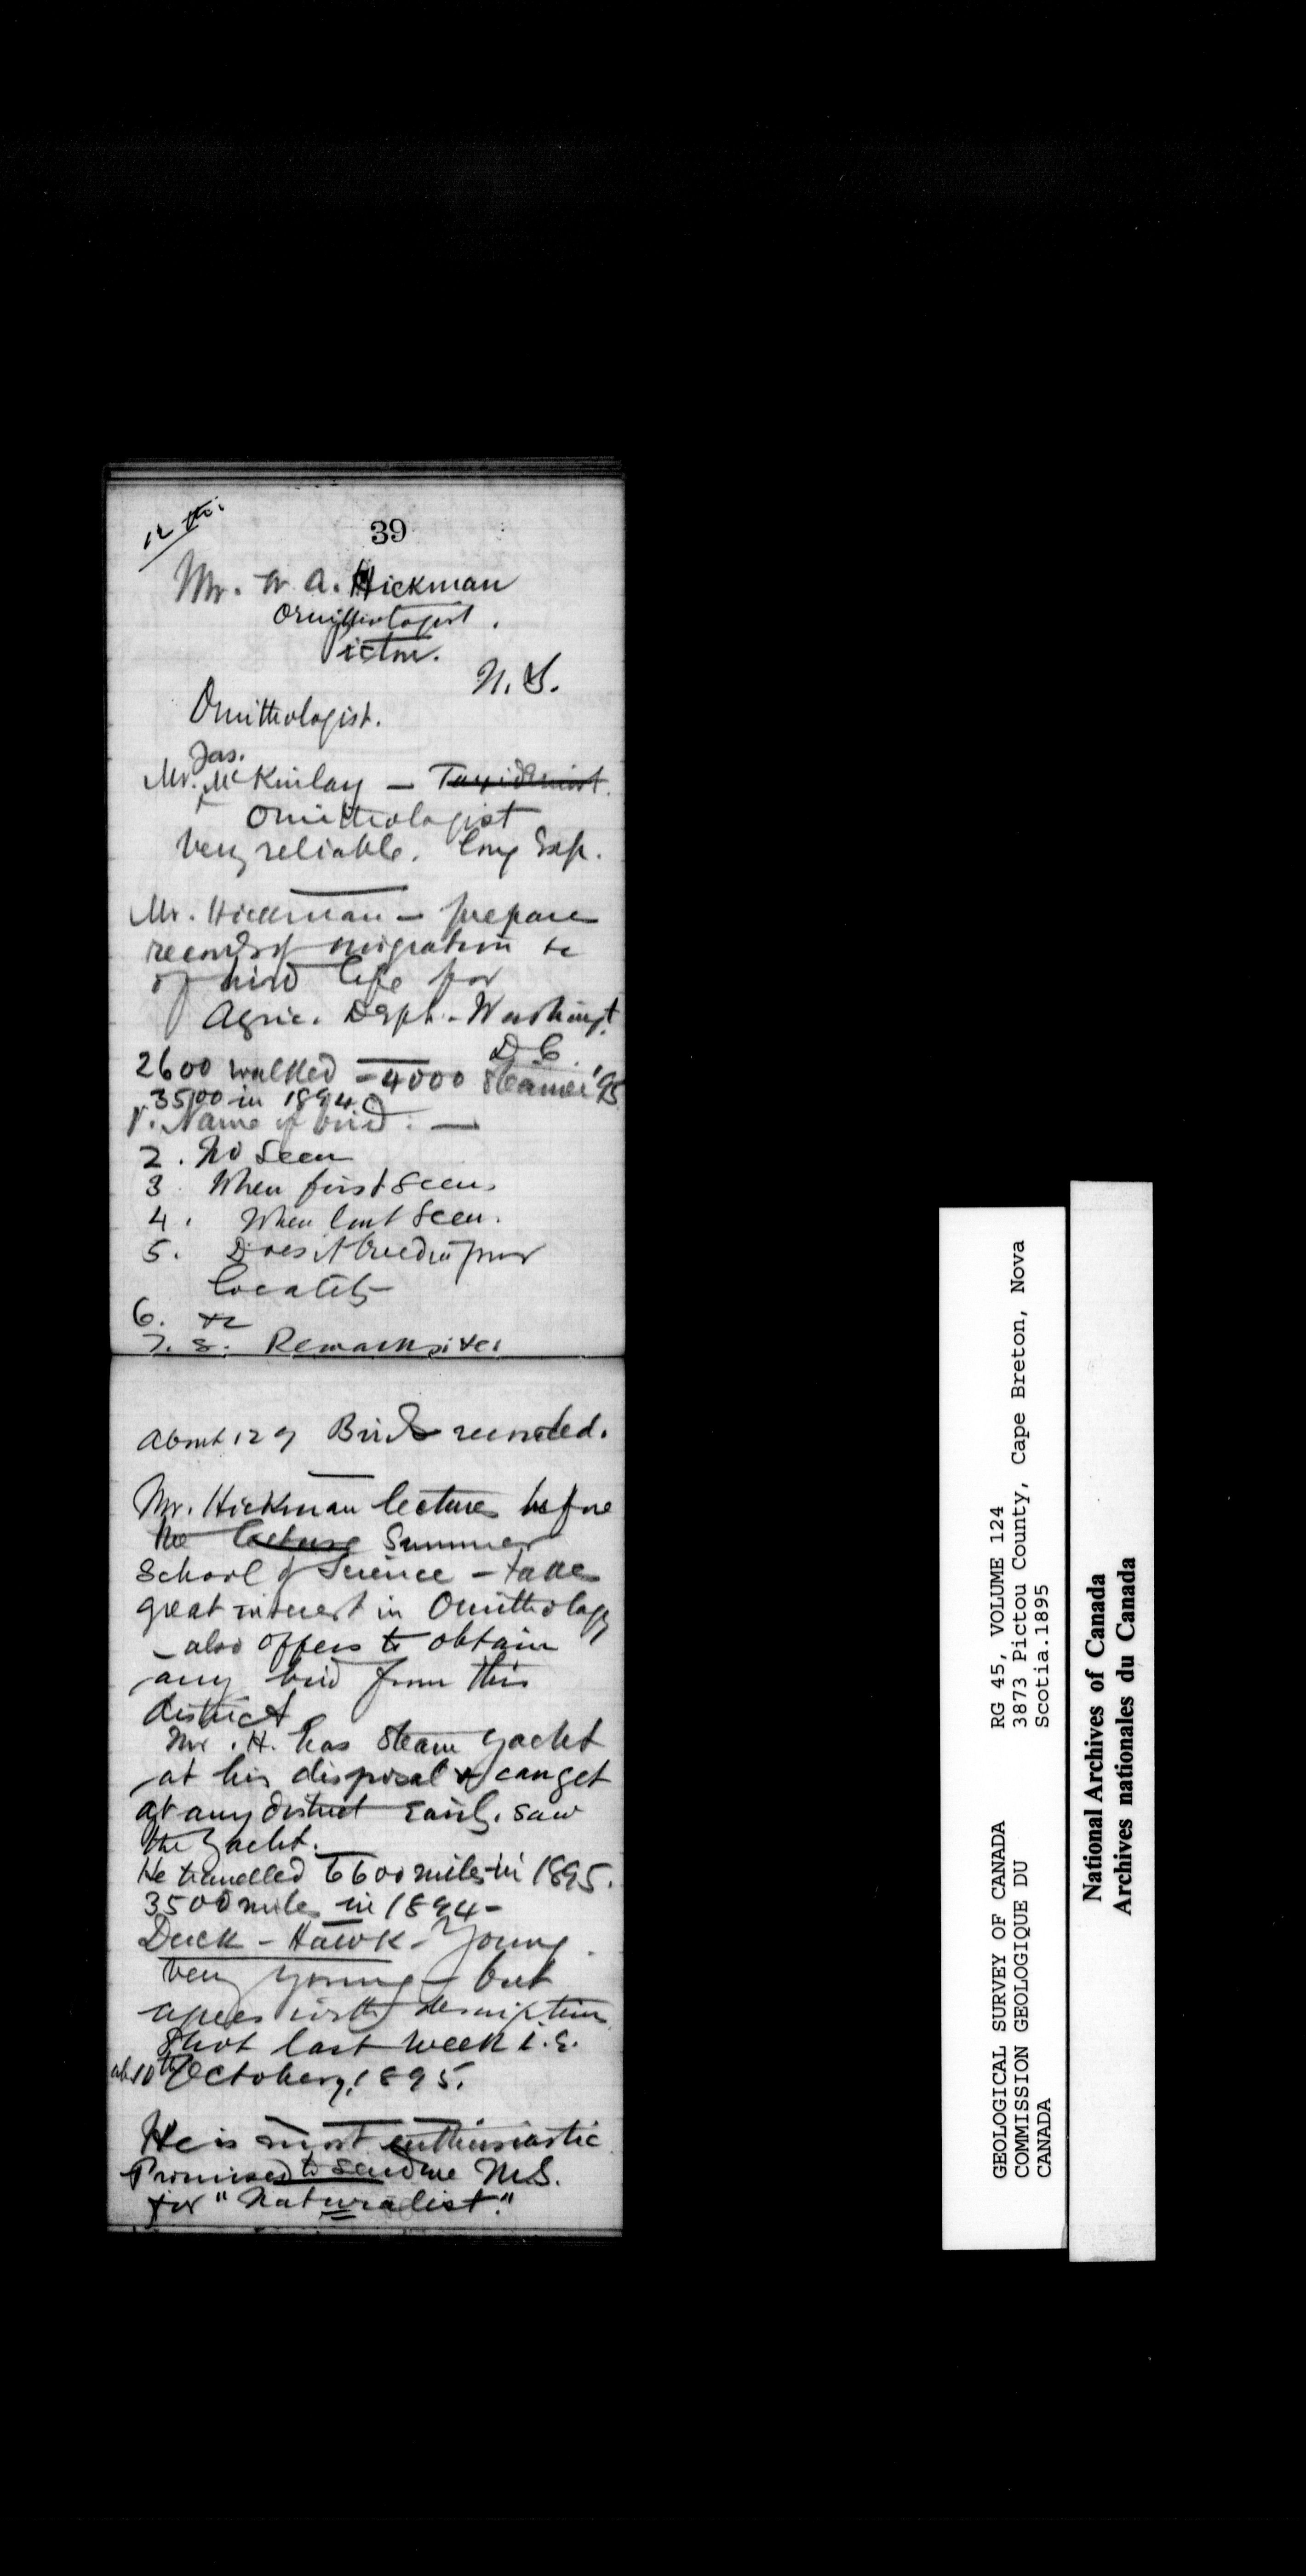 12th.
39
Mr. W A. Hickman
Ornithologist.
Pictou.
N.S.
Ornithologist.
Jas.
Mr. McKinlay — Taxidermist.
Ornithologist
Very reliable. long Exp.
Mr. Hickman — prepares
records of migration &c
of bird life for
Agric. Dept. - Washingt.
D C.
2600 walked — 4000 steamer '95
3500 in 1894
1. Name of bird. —
2. No seen
3 When first seen.
4. When last seen.
5. Does it breed in your
locality
6. &c
7. 8. Remarks, &c.
About 129 Birds recorded.
Mr. Hickman lectures before
the lecture Summer
School of Science — takes
great interest in Ornithology
— also offers to obtain
any bird from this
district.
Mr. H. has steam yacht
at his disposal & can get
at any district easily. saw
the yacht.
He travelled 6600 miles in 1895.
3500 miles in 1894 -
Duck - Hawk - Young.
very young — but
agrees with description
shot last week i.e.
ab. 10th October, 1895.
He is most enthusiastic
Promised to send me M.S.
for "Naturalist."
GEOLOGICAL SURVEY OF CANADA
COMMISSION GEOLOGIQUE DU
CANADA
RG 45, VOLUME 124
3873 Pictou County, Cape Breton, Nova
Scotia.1895
National Archives of Canada
Archives nationales du Canada